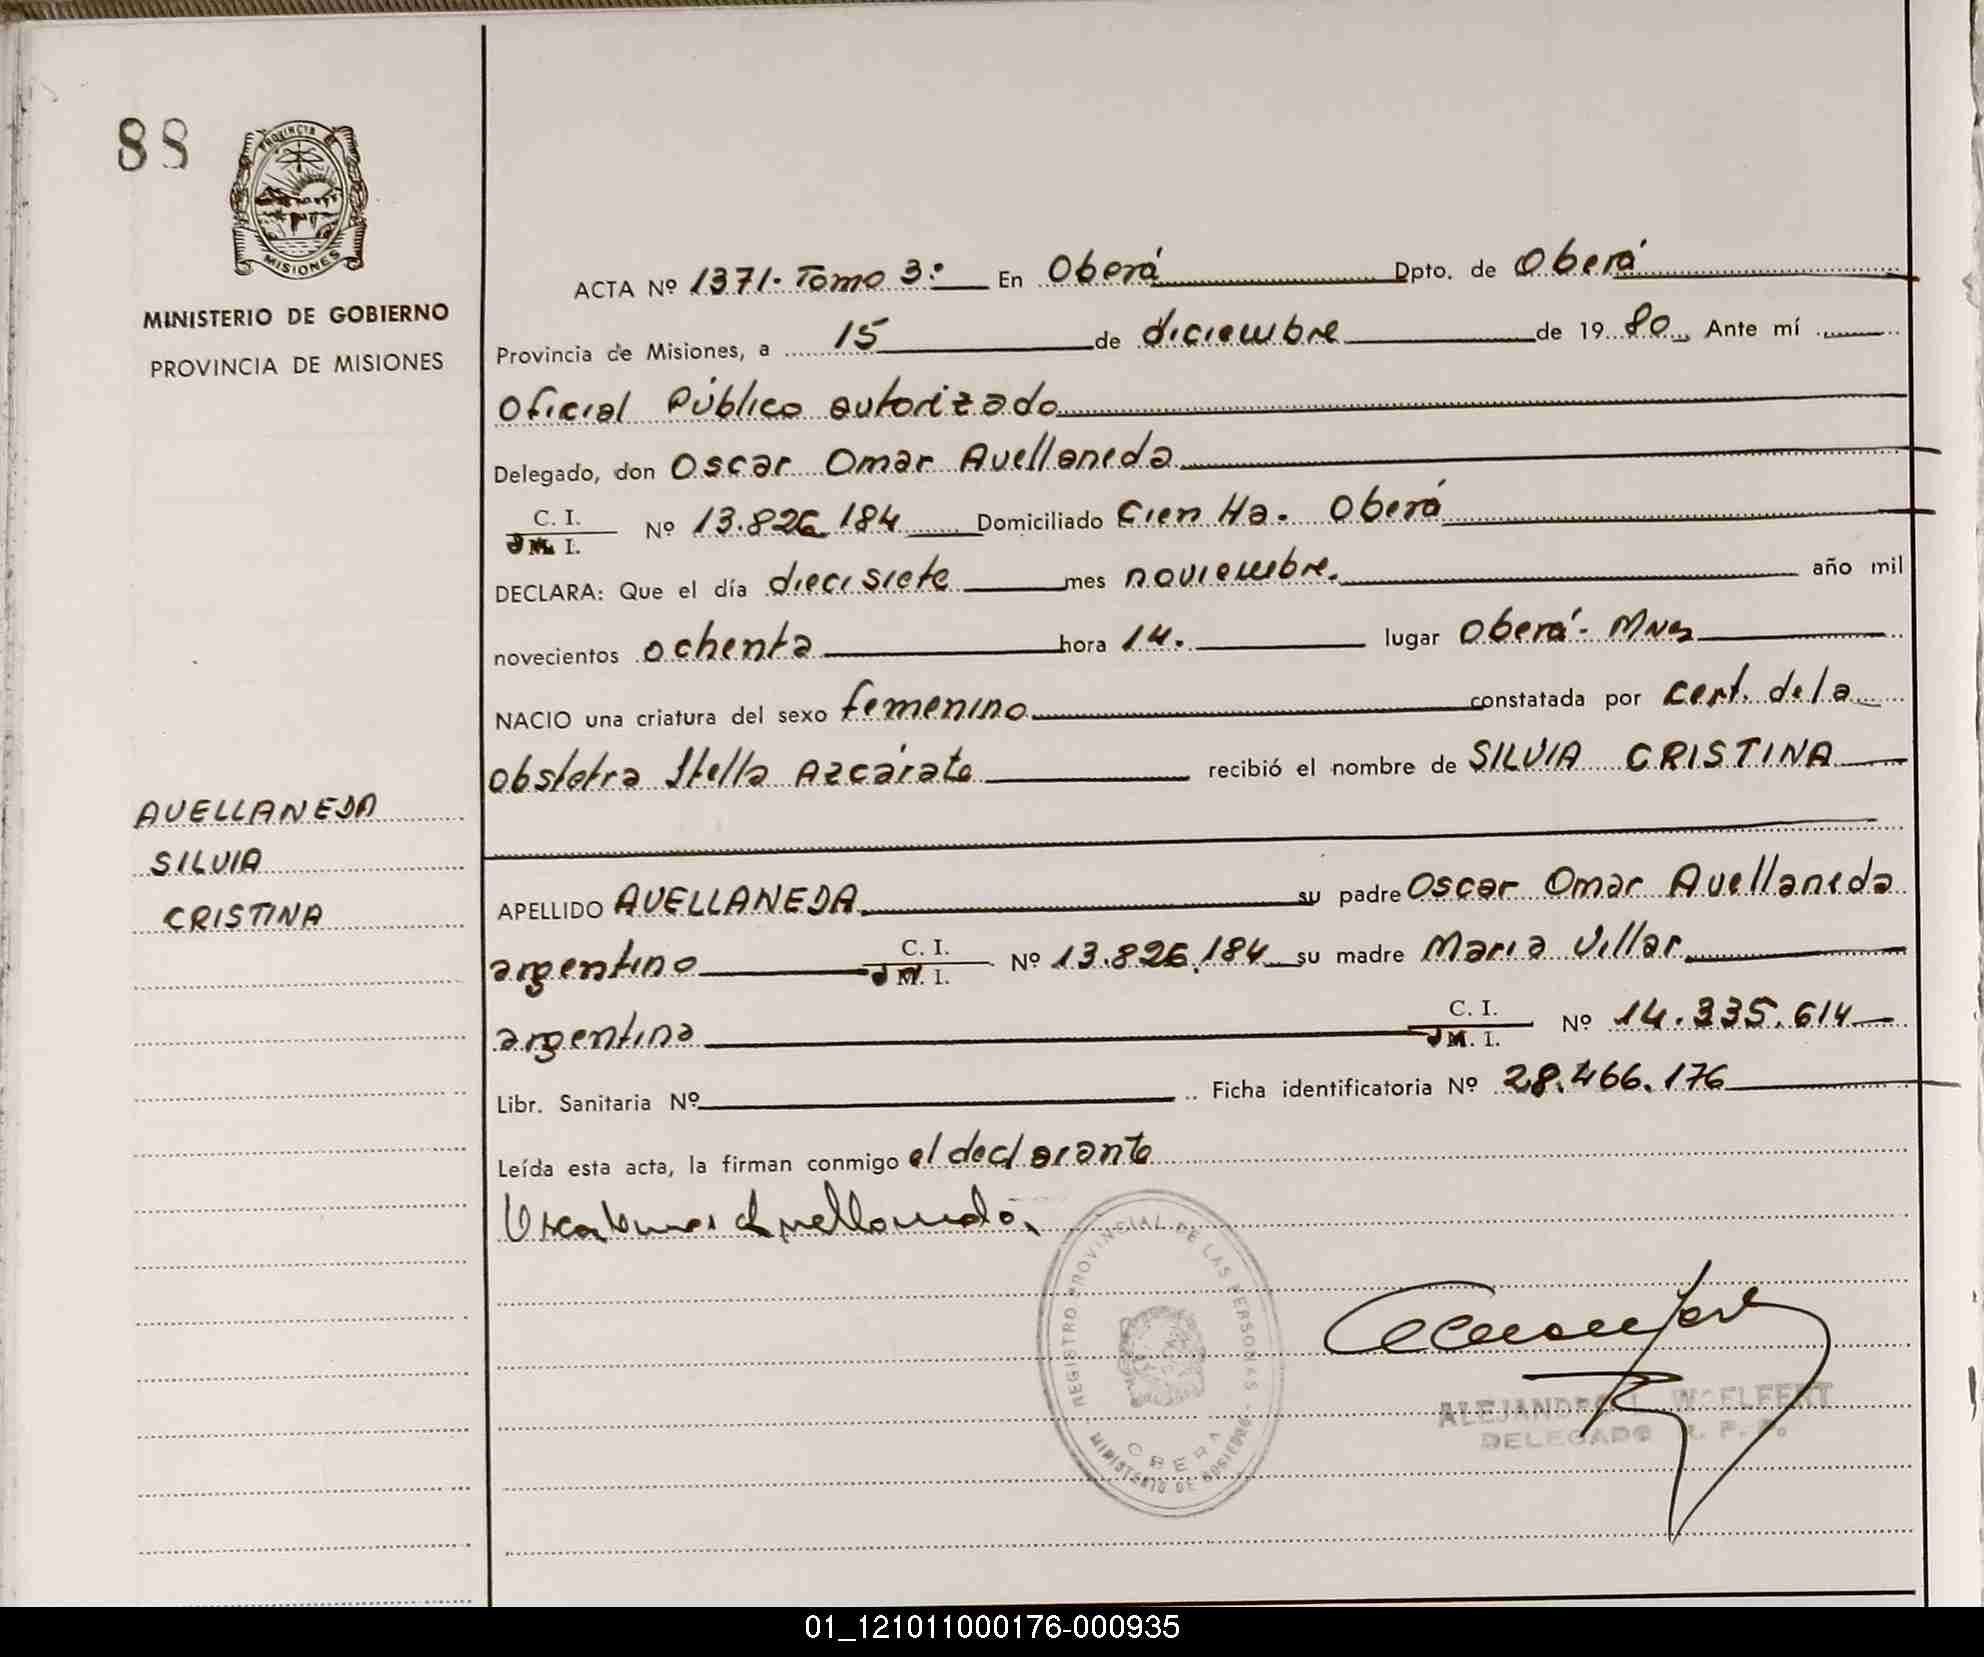 88
PROVINCIA DE
MISIONES
MINISTERIO DE GOBIERNO
PROVINCIA DE MISIONES
AVELLANEDA
SILVIA
CRISTINA
ACTA Nº 1371. Tomo 3º En Oberá Dpto. de Oberá
Provincia de Misiones, a 15 de diciembre de 1980 Ante mí
Oficial Público autorizado
Delegado, don Oscar Omar Avellaneda
C. I.
D M. I. Nº 13.826.184 Domiciliado Cien Ha. Oberá
DECLARA: Que el día diecisiete mes noviembre. año mil
novecientos ochenta hora 14. lugar Oberá - Mnes
NACIO una criatura del sexo femenino constatada por cert. de la
obstetra Stella Azcárate recibió el nombre de SILVIA CRISTINA
APELLIDO AVELLANEDA su padre Oscar Omar Avellaneda
argentino C. I. D M. I. Nº 13.826.184 su madre Maria Villar
argentina C. I. D M. I. Nº 14.335.614
Libr. Sanitaria Nº Ficha identificatoria Nº 28.466.176
Leída esta acta, la firman conmigo el declarante
Oscar Omar Avellaneda
REGISTRO PROVINCIAL DE LAS PERSONAS
OBERA
MINISTERIO DE GOBIERNO
ALEJANDRO WOELFERT
DELEGADO R. P. P.
01_121011000176-000935